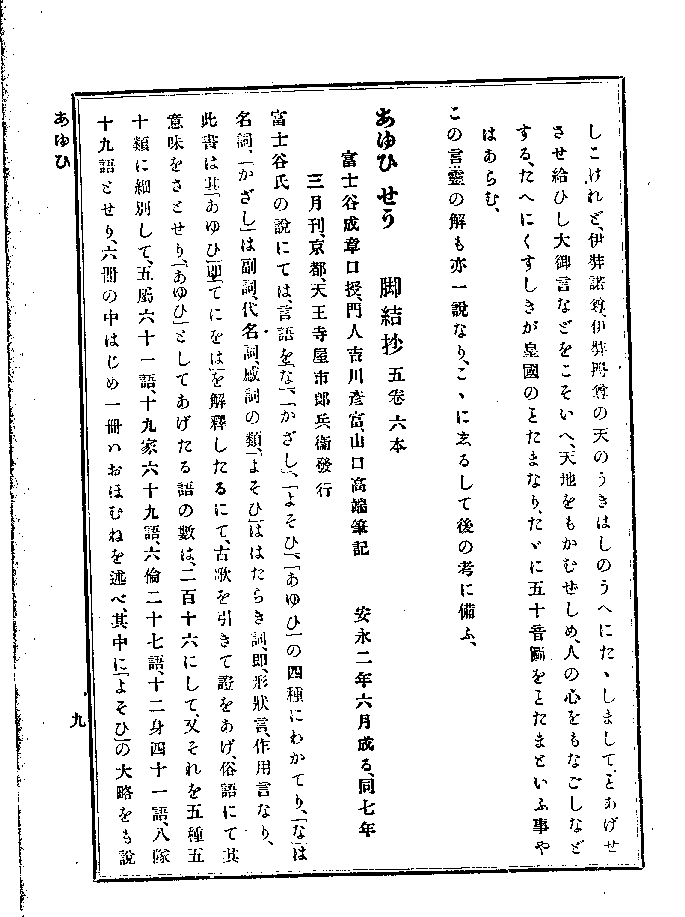 しこけれど、伊弉諾尊、伊弉册尊の天のうきはしのうへにたゝしまして、とあげせ
させ給ひし大御言などをこそいへ、天地をもかむぜしめ、人の心をもなごしなど
する、たへにくすしきが皇國のことたまなり、たゞに五十音圖をことたまといふ事や
はあらむ、
この言靈の解も亦一説なり、こゝに志るして後の考に備ふ、
あゆひせう 脚結抄 五卷六本
富士谷成章口授、門人吉川彥富、山口高端筆記 安永二年六月成る、同七年
三月刊、京都、天王寺屋市郎兵衞發行
富士谷氏の説にては、言語を「な」、「かざし」、「よそひ」、「あゆひ」の四種にわかてり、「な」は
名詞、「かざし」は副詞、代名詞、感詞の類、「よそひ」ははたらき詞、即、形狀言、作用言なり、
此書は其「あゆひ」即「てにをは」を解釋したるにて、古歌を引きて證をあげ、俗語にて其
意味をさとせり、「あゆひ」としてあげたる語の數は、二百十六にして、又それを五種五
十類に細別して、五屬六十一語、十九家六十九語、六倫二十七語、十二身四十一語、八隊
十九語とせり、六冊の中はじめ一冊ハおほむねを述べ、其中に「よそひ」の大略をも説
あゆひ
九